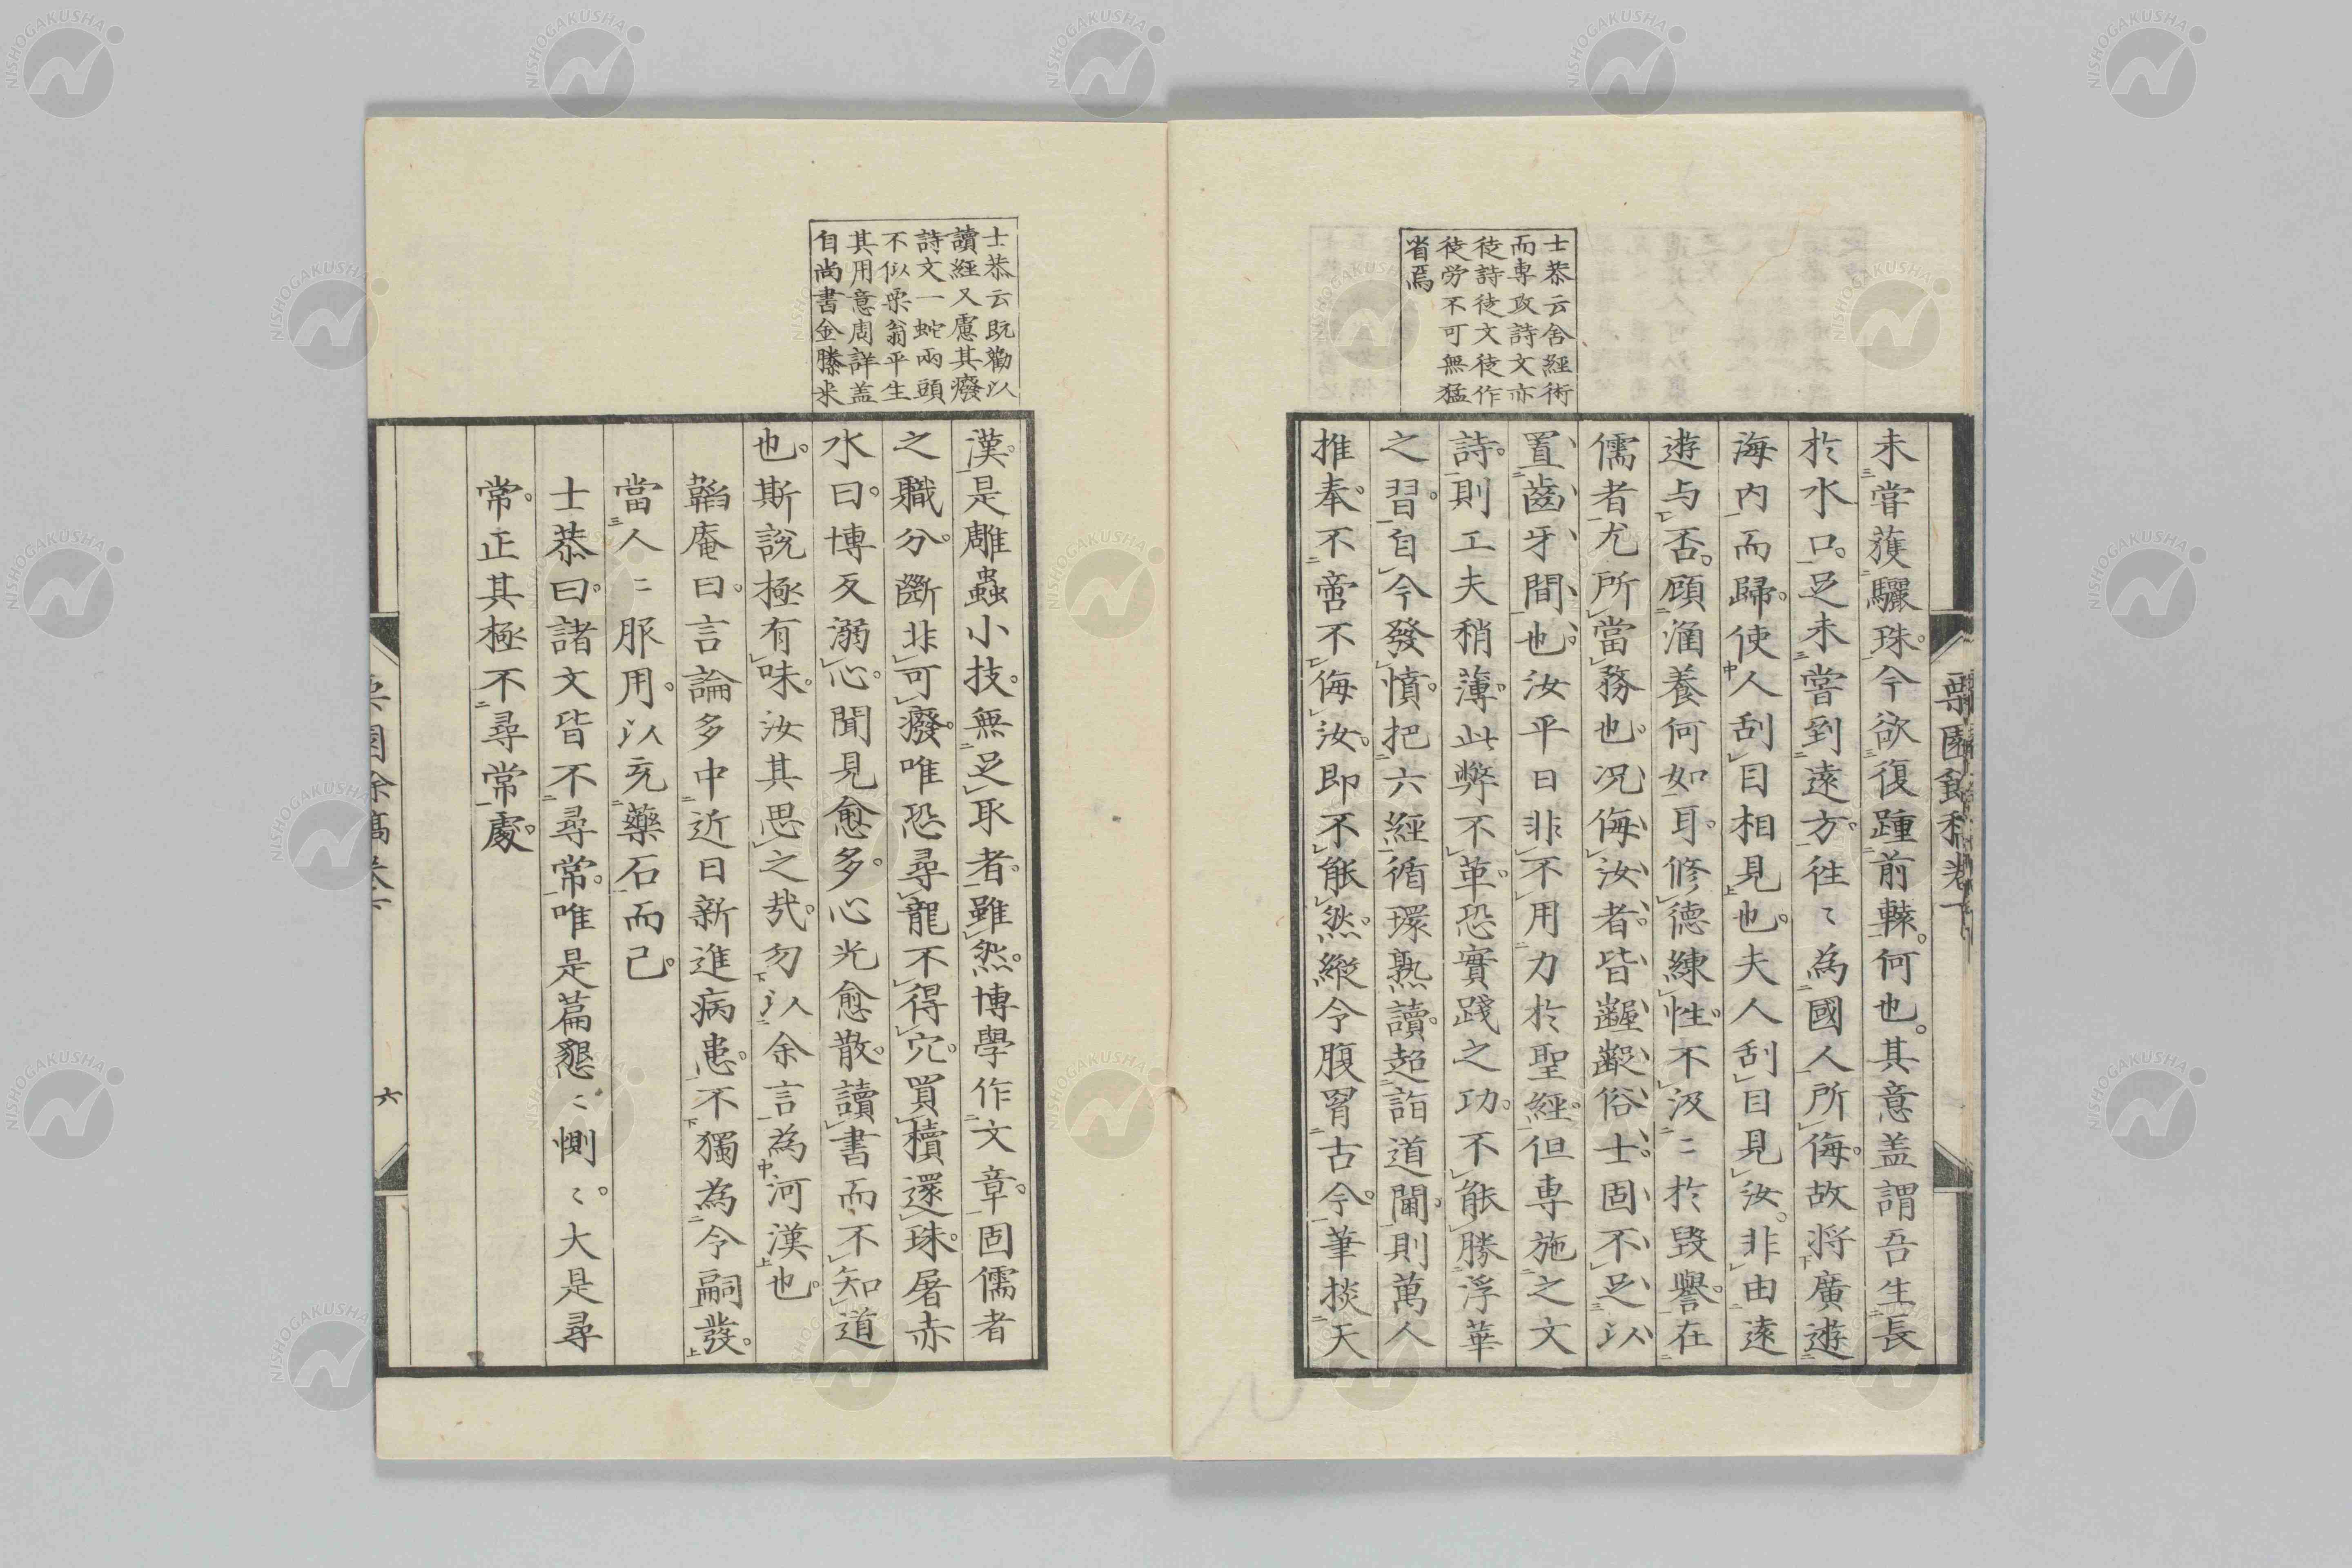 栗園餘稿卷下
士恭云舍經術
而専攻詩文亦
徒詩徒文徒作
徒労不可無猛
省焉
未嘗獲驪珠。今欲復踵前轅。何也。其意盖謂吾生長
於水口。足未嘗到遠方。往〻為國人所侮。故将廣遊
海内而歸。使人刮目相見也。夫人刮目見汝。非由遠
遊与否。顧涵養何如耳。修德練性。不汲〻於毀譽。在
儒者尤所當務也。况侮汝者。皆齷齪俗士。固不足以
置齒牙間也。汝平日非不用力於聖經。但専施之文
詩。則工夫稍薄。此弊不革。恐實踐之功。不能勝浮華
之習。自今發憤。把六經循環熟讀。超詣道閫。則萬人
推奉。不啻不侮汝。即不能然。縱令腹罥古今。筆掞天
士恭云既勸以
讀經又慮其癈
詩文一蛇兩頭
不似栗翁平生
其用意周詳盖
自尚書金縢来
漢。是雕蟲小技。無足取者。雖然。博學作文章。固儒者
之職分。斷非可癈。唯恐尋龍不得穴。買櫝還珠。屠赤
水曰。博反溺心。聞見愈多。心光愈散。讀書而不知道
也。斯說極有味。汝其思之哉。勿以余言為河漢也。
韜庵曰。言論多中近日新進病患。不獨為令嗣發。
當人〻服用。以充藥石而已。
士恭曰。諸文皆不尋常。唯是篇懇〻惻〻。大是尋
常。正其極不尋常處。
栗園餘稿卷下
六
NISHOGAKUSHA